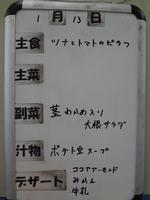 1月13日
主食 ツナとトマトのピラフ
主菜
副菜 茎わかめ入り
大根サラダ
汁物 ポテト豆スープ
デザート ココアアーモンド
みかん
牛乳